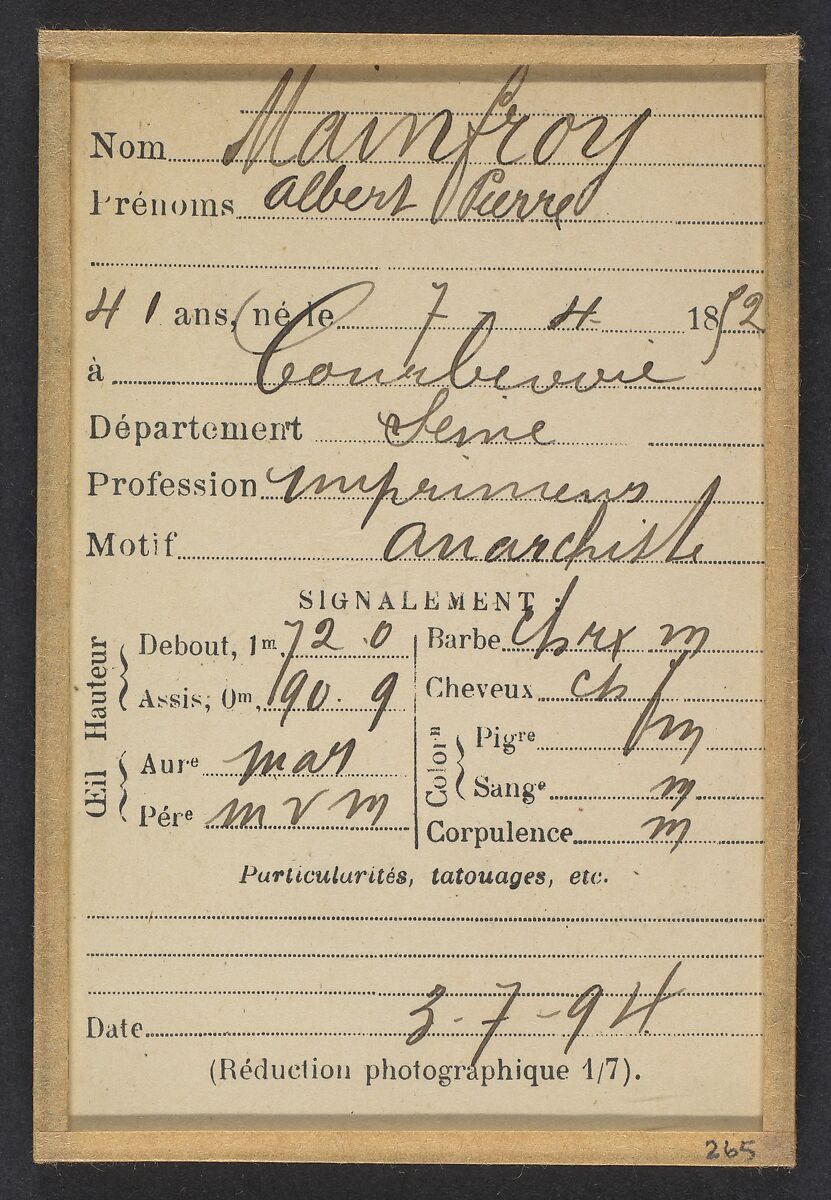 Nom Mainfroy
Prénoms Albert Pierre
41 ans, né le 7 - 4 - 1852
à Courbevoie
Département Seine
Profession imprimeur
Motif anarchiste
SIGNALEMENT :
Hauteur
Debout, 1m, 72 0
Assis, 0m, 90. 9
Œil
Aure mar
Pére m v m
Barbe ch rx m
Cheveux ch f
Colorn
Pigre m
Sange m
Corpulence m
Particularités, tatouages, etc.
Date 3-7-94
(Réduction photographique 1/7).
265